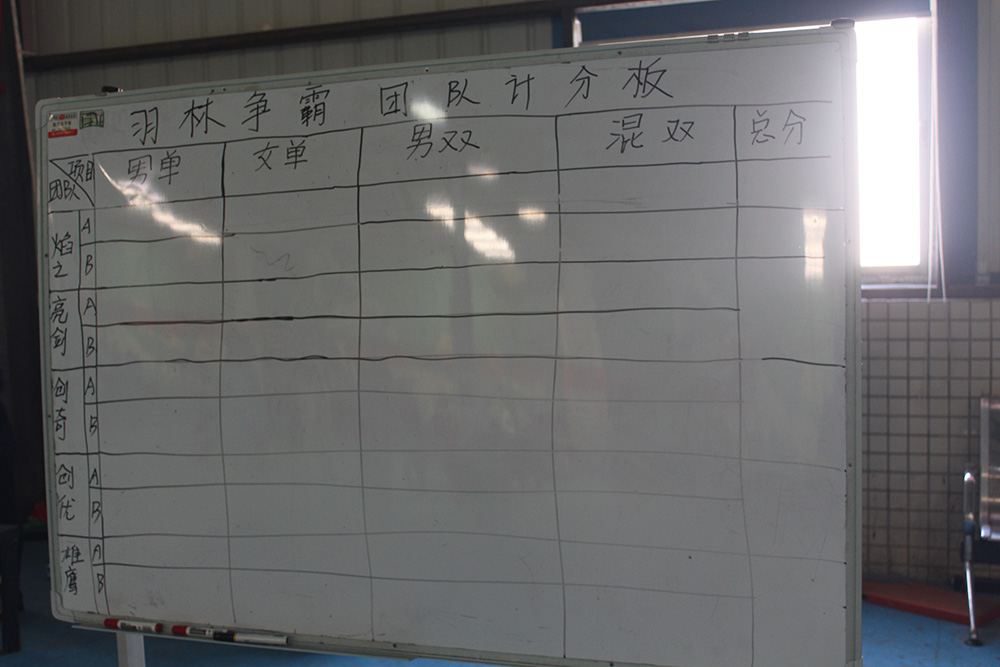 羽林争霸 团队计分板
项目 男单 文单 男双 混双 总分
团队
焰之 A
B
亮剑 A
B
创奇 A
B
创优 A
B
雄鹰 A
B